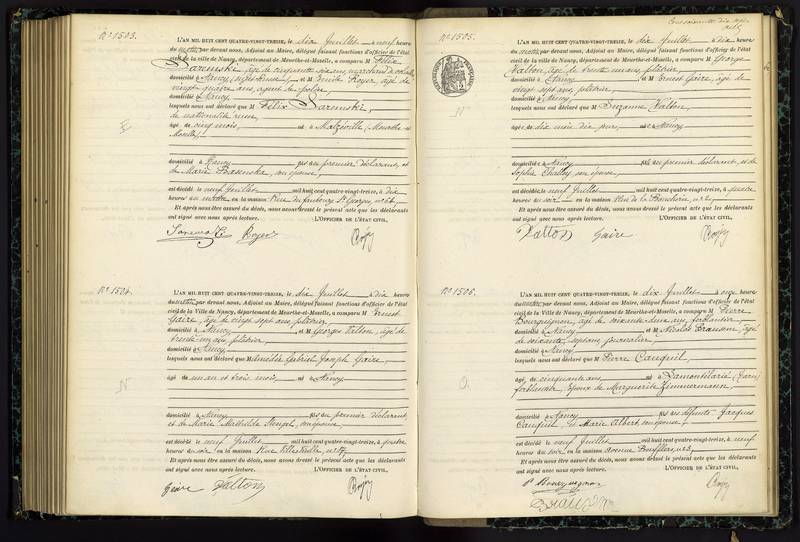 No 1503.
L'AN MIL HUIT CENT QUATRE-VINGT-TREIZE, le dix Juillet à neuf heures
du matin par devant nous, Adjoint au Maire, délégué faisant fonctions d'officier de l'état
civil de la ville de Nancy, département de Meurthe-et-Moselle, a comparu M Félix
âgé de cinquante six ans, marchand de
domicilié à Nancy, et M Emile Royer, âgé de
vingt quatre ans, agent de police
domicilié à Nancy
lesquels nous ont déclaré que M Félix
de nationalité russe
âgé de cinq mois, né à Malzéville (Meurthe et
Moselle)
domicilié à Nancy fils du premier déclarant, et
de Marie son épouse,
est décédé le neuf Juillet mil huit cent quatre-vingt-treize, à dix
heures du matin en la maison Rue du faubourg St Georges, no 64,
Et après nous être assuré du décès, nous avons dressé le présent acte que les déclarants
ont signé avec nous après lecture. L'OFFICIER DE L'ÉTAT CIVIL,
Royer
No 1504.
L'AN MIL HUIT CENT QUATRE-VINGT-TREIZE, le dix Juillet à dix heures
du matin par devant nous, Adjoint au Maire, délégué faisant fonctions d'officier de l'état
civil de la Ville de Nancy, département de Meurthe-et-Moselle, a comparu M Ernest
Gaire, âgé de vingt sept ans, plâtrier
domicilié à Nancy et M Georges Valton, âgé de
trente un ans, plâtrier
domicilié à Nancy
lesquels nous ont déclaré que M Gabriel Joseph Gaire,
âgé de un an et trois mois, né à Nancy
N
domicilié à Nancy fils du premier déclarant,
et de Marie Mathilde Stengel, son épouse
est décédé le neuf Juillet mil huit cent quatre-vingt-treize, à quatre
heures du soir en la maison Rue
Et après nous être assuré du décès, nous avons dressé le présent acte que les déclarants
ont signé avec nous après lecture. L'OFFICIER DE L'ÉTAT CIVIL,
Gaire Valton
No 1505.
L'AN MIL HUIT CENT QUATRE-VINGT-TREIZE, le dix Juillet à dix heures
du matin par devant nous, Adjoint au Maire, délégué faisant fonctions d'officier de l'état
civil de la ville de Nancy, département de Meurthe-et-Moselle, a comparu M George
Valton, âgé de trente un ans, plâtrier
domicilié à Nancy et M Ernest Gaire, âgé de
vingt sept ans, plâtrier,
domicilié à Nancy
lesquels nous ont déclaré que M Suzanne Valton,
N
âgée de dix mois dix jours, née à Nancy
domiciliée à Nancy fille du premier déclarant, et de
Sophie son épouse,
est décédée le neuf Juillet mil huit cent quatre-vingt-treize, à quatre
heures du soir en la maison Rue de la
Et après nous être assuré du décès, nous avons dressé le présent acte que les déclarants
ont signé avec nous après lecture. L'OFFICIER DE L'ÉTAT CIVIL,
Valton Gaire
No 1506.
L'AN MIL HUIT CENT QUATRE-VINGT-TREIZE, le dix Juillet à onze heures
du matin par devant nous, Adjoint au Maire, délégué faisant fonctions d'officier de l'état
civil de la Ville de Nancy, département de Meurthe-et-Moselle, a comparu M Pierre
Bourguignon, âgé de soixante deux ans, ferblantier
domicilié à Nancy et M Nicolas âgé
de soixante sept ans, journalier
domicilié à Nancy
lesquels nous ont déclaré que M Pierre Cauquil,
âgé de cinquante ans né à (Tarn)
ferblantier, époux de Marguerite Zimmermann,
domicilié à Nancy fils des défunts Jacques
Cauquil, et Marie Albert, son épouse
est décédé le neuf Juillet mil huit cent quatre-vingt-treize, à neuf
heures du soir en la maison avenue
Et après nous être assuré du décès, nous avons dressé le présent acte que les déclarants
ont signé avec nous après lecture. L'OFFICIER DE L'ÉTAT CIVIL,
P Bourguignon